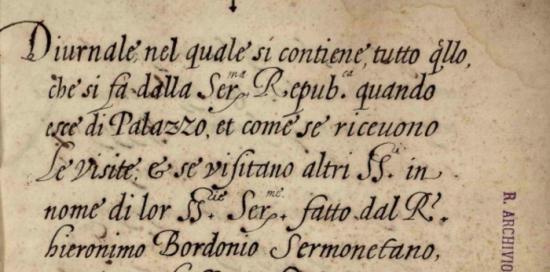 Diurnale, nel quale si contiene, tutto q̃llo,
che si fà dalla Ser.ma Repub.ca quando
esce di Palazzo, et come se riceuono
le visite, & se visitano altri SS.ri in
nome di lor SS.rie Ser.me fatto dal R.º
hieronimo Bordonio Sermonetano,
R. ARCHIVIO